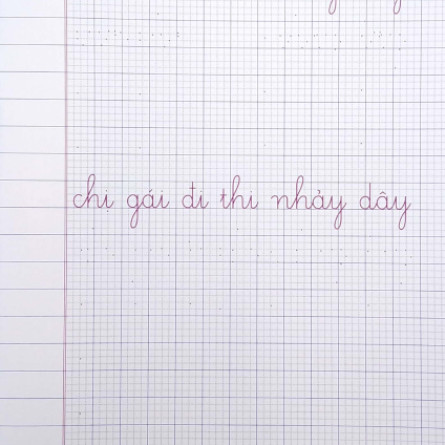 chị gái đi thi nhảy dây